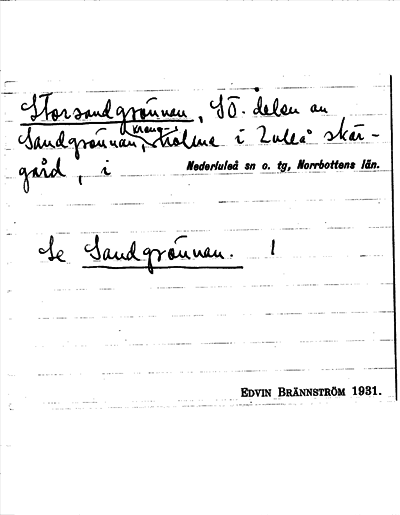 Storsandgrönnan, SÖ. delen av
Sandgrönnan, kronoholme i Luleå skär-
gård, i Nederluleå sn o. tg, Norrbottens län.
Se Sandgrönnan. !
EDVIN BRÄNNSTRÖM 1931.